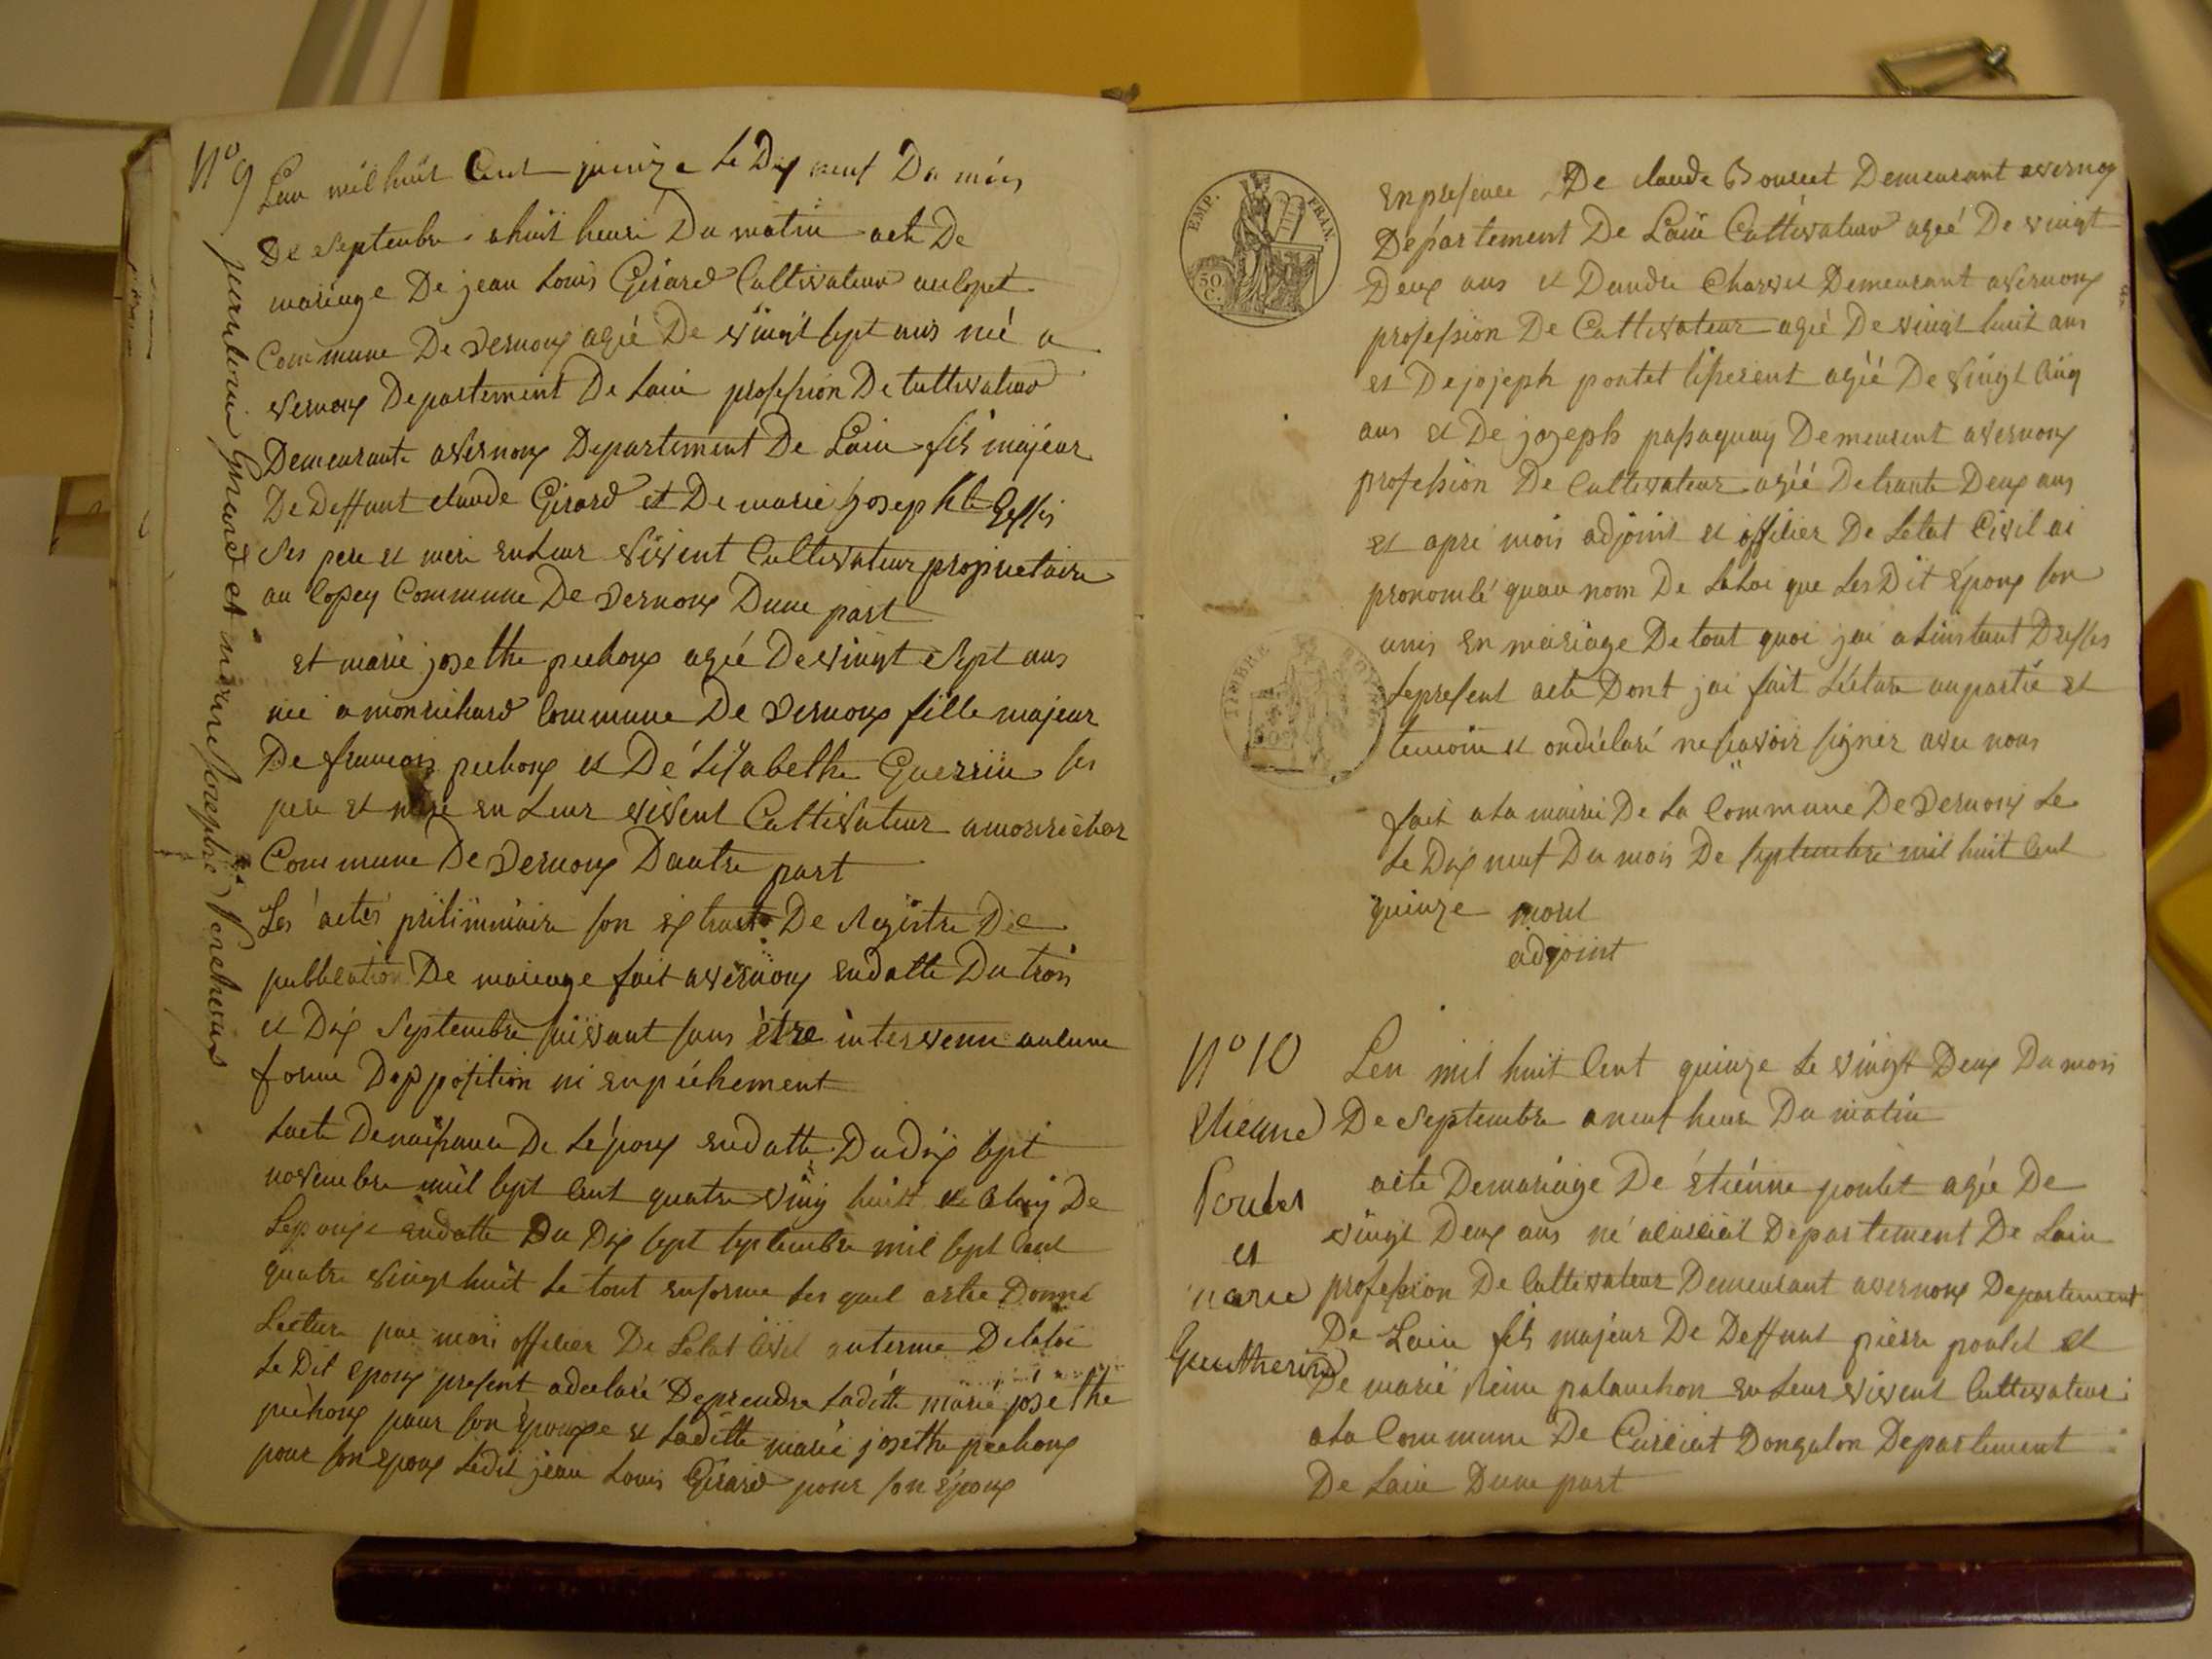 N° 9
Lan mil huit Cent quinze le Dix neuf Du mois
De Septembre a huit heure Du matin acte De
mariage De jean Louis Girard Cultivateur au lopet
Commune De vernoux agée De vingt sept ans né a
vernoux Departement De Lain profession De Cultivateur
Demeurante avernoux Departement De Lain fils majeur
De Deffunt claude Girard et De marie Joseph
ses pere et mere en Leur vivent Cultivateur proprietaire
au lopey Commune De vernoux Dune part
et marie josethe pechoux agée De vingt Sept ans
née a monrichard Commune De vernoux fille majeur
De francois pechoux et De Elisabethe Guerrin ses
pere et mere en Leur vivent Cultivateur amonrichar
Commune De vernoux Dautre part
Les actes priliminaire son extrait De Registre De
publication De mariage fait avernoux endatte Du trois
et Dix Septembre suivant sans être intervenu aucune
forme Dopposition ni enpéchement
Lacte De naissance De Lépoux endatte Du dix sept
novembre mil sept Cent quatre ving huit et Celuy De
Lepouse endatte Du Dix sept septembre mil sept Cent
quatre vingt huit Le tout enforme les quel astée Donné
Lecture par mois officier De Letat Civil au terme De la loi
Le Dit epoux present a declaré De prendre Ladite marie josethe
péchoux pour son épouse et Ladite marie josethe péchoux
pour son epoux Ledit jean Louis Girard pour son époux
jean louis Girard et marie josephe Perchoux
EMP. FRAN.
50 C.
En presence De claude Bouret Demeurant avernoy
Departement De Lain Cultivateur agée De vingt
Deux ans et Dandre Charvet Demeurant avernoux
profession De Cultivateur agé De vingt huit ans
et De jojeph poutet agéé De vingt Cinq
ans et De jozeph passaquay Demeurent avernoux
profession De Cultivateur agéé De trante Deux ans
et apre mois adjoint et officier De Letat Civil ai
prononcé quau nom De La Loi que Les Dit Epoux son
unis En mariage De tout quoi jai a Linstant Dressés
Le present acte Dont jai fait Lécture au partié et
temoin et ondéclaré ne scavoir signer avec nous
TIMBRE ROYAL
fait a la mairie De La Commune De vernoux Le
Le Dix neuf Du mois De septembre mil huit Cent
quinze morel
adjoint
N° 10
Etienne
Poutet
et
marie
Guutherin
Len mil huit Cent quinze le vingt Deux Du mois
De Septembre a neuf heure Du matin
acte De mariage De étiénne poutet agée De
vingt Deux ans né a Curciat Departement De Lain
profession De Cultivateur Demeurant avernoux Departement
De Lain fils majeur De Deffunt pierre poutet et
De marie Reine palanchon en Leur vivent Cultivateur
a La Commune De Curciat Dongalon Departement
De Lain Dune part